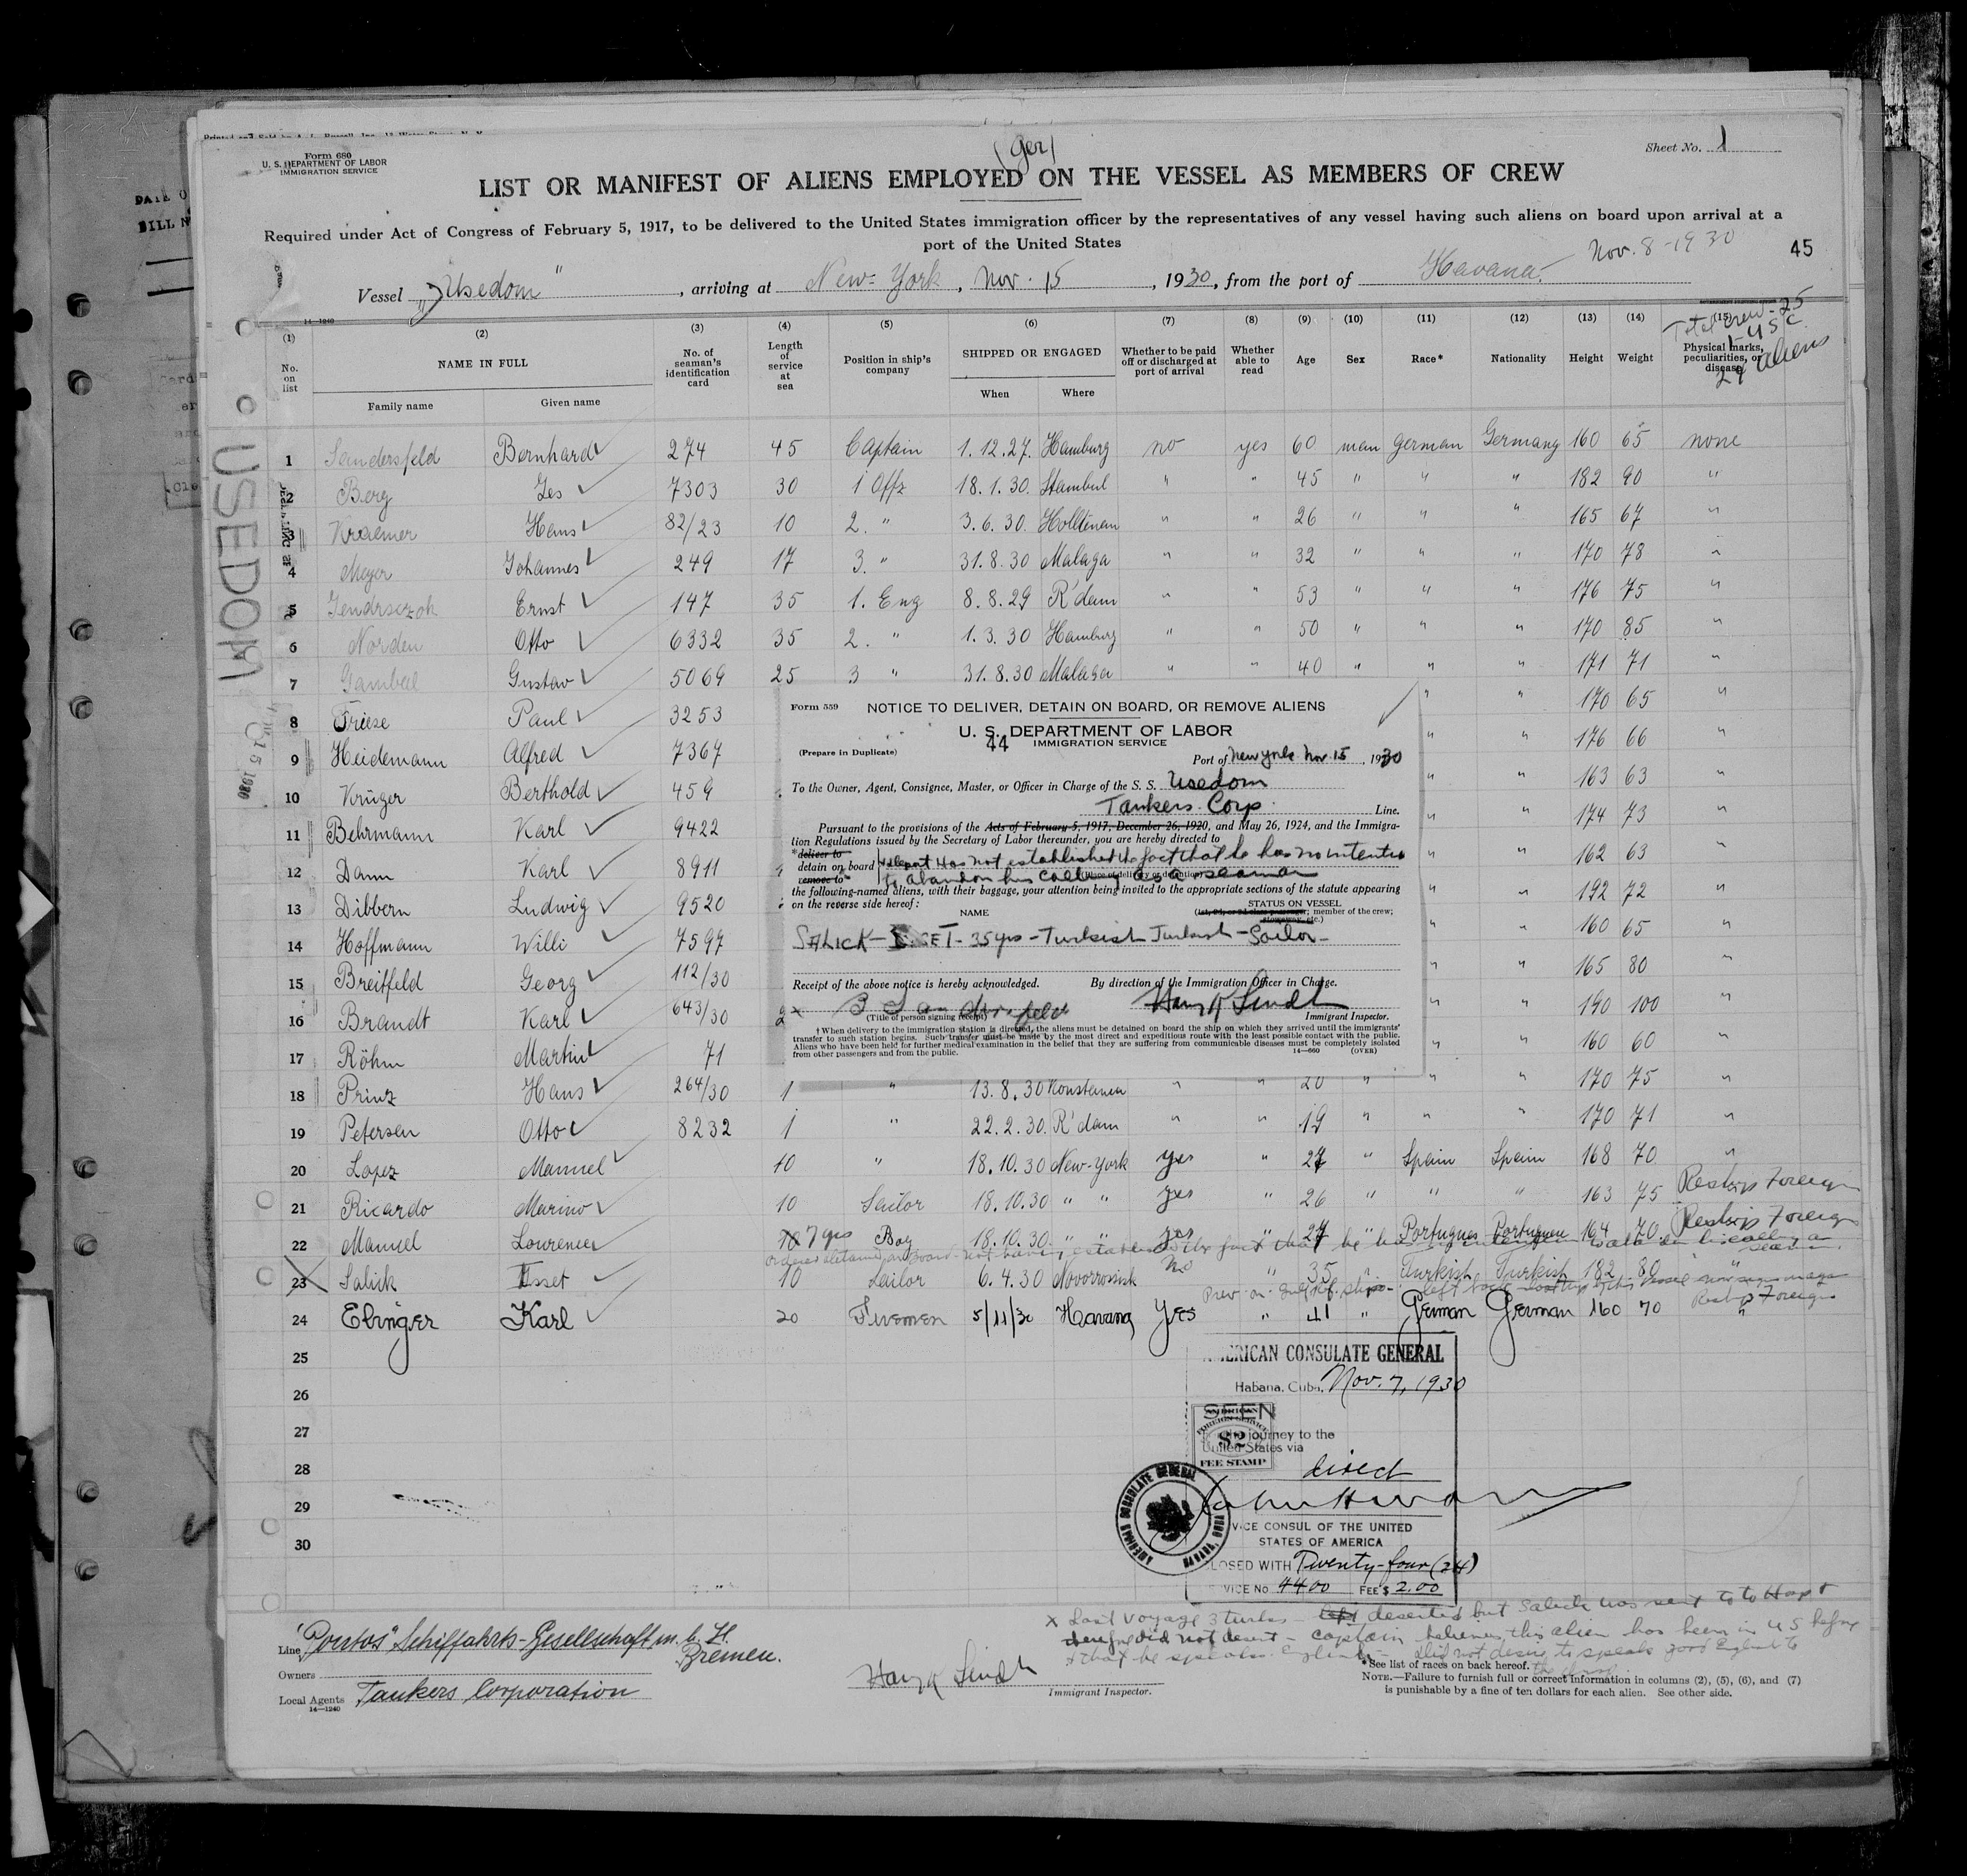 Form 680
U. S. DEPARTMENT OF LABOR
IMMIGRATION SERVICE
(Ger)
Sheet No. 1
LIST OR MANIFEST OF ALIENS EMPLOYED ON THE VESSEL AS MEMBERS OF CREW
Required under Act of Congress of February 5, 1917, to be delivered to the United States immigration officer by the representatives of any vessel having such aliens on board upon arrival at a
port of the United States
Nov. 8-1930
45
Vessel „Usedom", arriving at New-York, Nov. 15, 1930, from the port of Havana.
14—1240
Total crew-25
1-USC
24 aliens
(1) (2) (3) (4) (5) (6) (7) (8) (9) (10) (11) (12) (13) (14) (15)
No. on list
NAME IN FULL
Family name
Given name
No. of seaman's identification card
Length of service at sea
Position in ship's company
SHIPPED OR ENGAGED
When
Where
Whether to be paid off or discharged at port of arrival
Whether able to read
Age
Sex
Race*
Nationality
Height
Weight
Physical marks, peculiarities, or disease
USEDOM
15 1930
1 Sandersfeld Bernhard 274 45 Captain 1.12.27. Hamburg no yes 60 man german Germany 160 65 none
2 Berg Jes 7303 30 1 Offz 18.1.30. Stambul " " 45 " " " 182 90 "
3 Kraemer Hans 82/23 10 2. " 3.6.30. " " 26 " " " 165 67 "
4 Meyer Johannes 249 17 3. " 31.8.30 Malaga " " 32 " " " 170 78 "
5 Ernst 147 35 1. Eng 8.8.29 R'dam " " 53 " " " 176 75 "
6 Norden Otto 6332 35 2. " 1.3.30 Hamburg " " 50 " " " 170 85 "
7 Gustav 5069 25 3 " 31.8.30 Malaga " " 40 " " " 171 71 "
8 Friese Paul 3253 " " 170 65 "
9 Heidemann Alfred 7367 " " 176 66 "
10 Krüger Berthold 459 " " 163 63 "
11 Behrmann Karl 9422 " " 174 73 "
12 Dann Karl 8911 " " 162 63 "
13 Dibbern Ludwig 9520 " " 192 72 "
14 Hoffmann Willi 7597 " " 160 65 "
15 Breitfeld Georg 112/30 " " 165 80 "
16 Brandt Karl 643/30 " " 190 100 "
17 Röhm Martin 71 " " 160 60 "
18 Prinz Hans 264/30 1 " 13.8.30 " " 20 " " " 170 75 "
19 Petersen Otto 8232 1 " 22.2.30. R'dam " " 19 " " " 170 71 "
20 Lopez Manuel 10 " 18.10.30 New-York yes " 27 " Spain Spain 168 70 "
21 Ricardo Marino 10 Sailor 18.10.30 " " yes " 26 " " " 163 75 Reship Foreign
22 Manuel Lourence 7 yrs Boy 18.10.30. " " yes " 27 " Portugues Portuguese 164 70 Reship Foreign
ordered detained on board - not having established the fact that he has no intention
23 Salick Isset 10 Sailor 6.4.30 Novorrossisk No " 35 " Turkish Turkish 182 80 "
Reship Foreign
24 Ebinger Karl 20 Firemen 5/11/30 Havana Yes " 41 " German German 160 70 "
25
26
27
28
29
30
Form 559 NOTICE TO DELIVER, DETAIN ON BOARD, OR REMOVE ALIENS
U. S. DEPARTMENT OF LABOR
44 IMMIGRATION SERVICE
(Prepare in Duplicate)
Port of New York Nov 15, 1930
To the Owner, Agent, Consignee, Master, or Officer in Charge of the S. S. Usedom
Tankers Corp. Line.
Pursuant to the provisions of the Acts of February 5, 1917, December 26, 1920, and May 26, 1924, and the Immigra-
tion Regulations issued by the Secretary of Labor thereunder, you are hereby directed to
*deliver to
detain on board has not established the fact that he has no intention
remove to to abandon his calling as a seaman
(Place of delivery or detention)
the following-named aliens, with their baggage, your attention being invited to the appropriate sections of the statute appearing
on the reverse side hereof:
NAME
STATUS ON VESSEL
(1st, 2d, or 3d class passenger; member of the crew;
stowaway, etc.)
SALICK - ISSET - 35 yrs - Turkish Turkish - Sailor -
Receipt of the above notice is hereby acknowledged. By direction of the Immigration Officer in Charge.
B Sandersfeld
Harry R Lindh
(Title of person signing receipt) Immigrant Inspector.
† When delivery to the immigration station is directed, the aliens must be detained on board the ship on which they arrived until the immigrants'
transfer to such station begins. Such transfer must be made by the most direct and expeditious route with the least possible contact with the public.
Aliens who have been held for further medical examination in the belief that they are suffering from communicable diseases must be completely isolated
from other passengers and from the public.
14—660 (OVER)
AMERICAN CONSULATE GENERAL
Habana, Cuba, Nov. 7, 1930
SEEN
AMERICAN FOREIGN SERVICE $2 FEE STAMP
journey to the
United States via
direct
VICE CONSUL OF THE UNITED
STATES OF AMERICA
AMERICAN CONSULATE GENERAL
CLOSED WITH Twenty-four (24)
SERVICE No. 4400 FEE $ 2.00
x Last voyage 3 turks - left deserted but Salick was sent to Hosp &
therefore did not desert - captain believes this alien has been in US before
& that he speaks English - did not desire to speak good English to
Line „Pontos" Schiffahrts-Gesellschaft m. b. H.
Bremen.
Owners
Local Agents Tankers Corporation
14—1240
Harry R Lindh
Immigrant Inspector.
*See list of races on back hereof.
NOTE.—Failure to furnish full or correct information in columns (2), (5), (6), and (7)
is punishable by a fine of ten dollars for each alien. See other side.